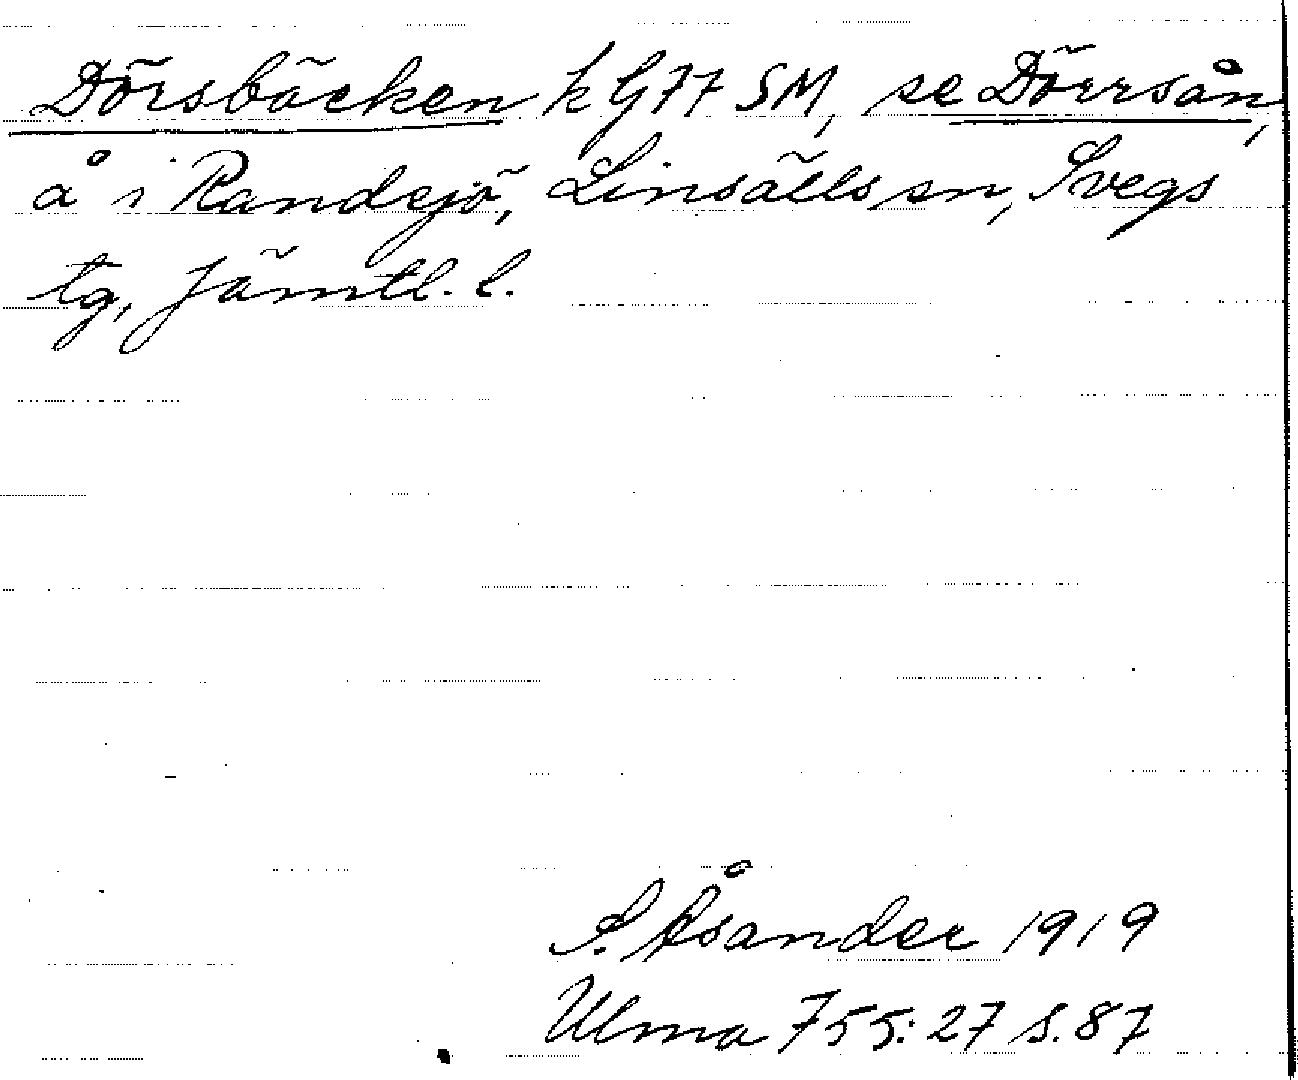 Dörsbäcken k G77 SM, se Dörrsån,
å i Randsjö, Linsälls sn, Svegs
tg, Jämtl. l.
S. Åsander 1919
Ulma 755:27 s. 87